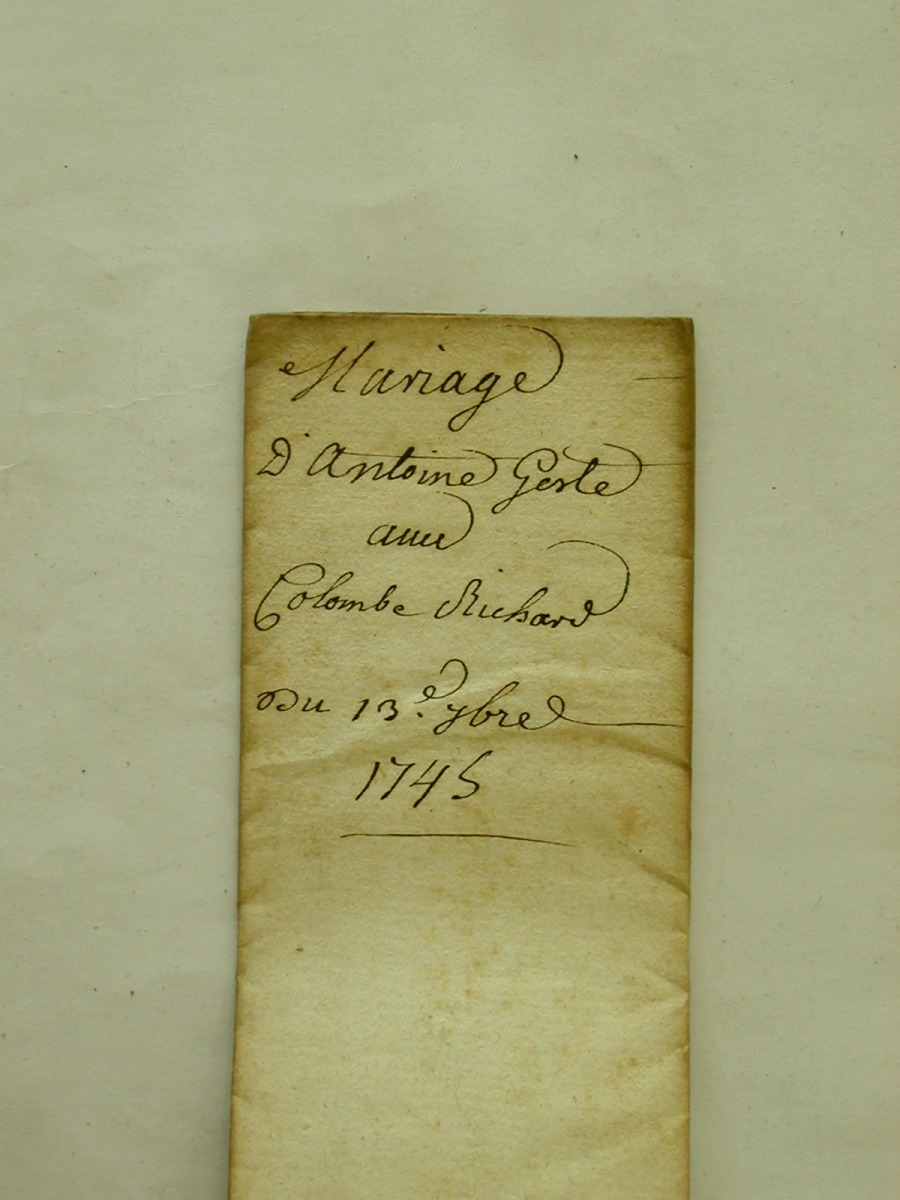 Mariage
D'Antoine Geste
avec
Colombe Richard
Du 13.e 7bre
1745